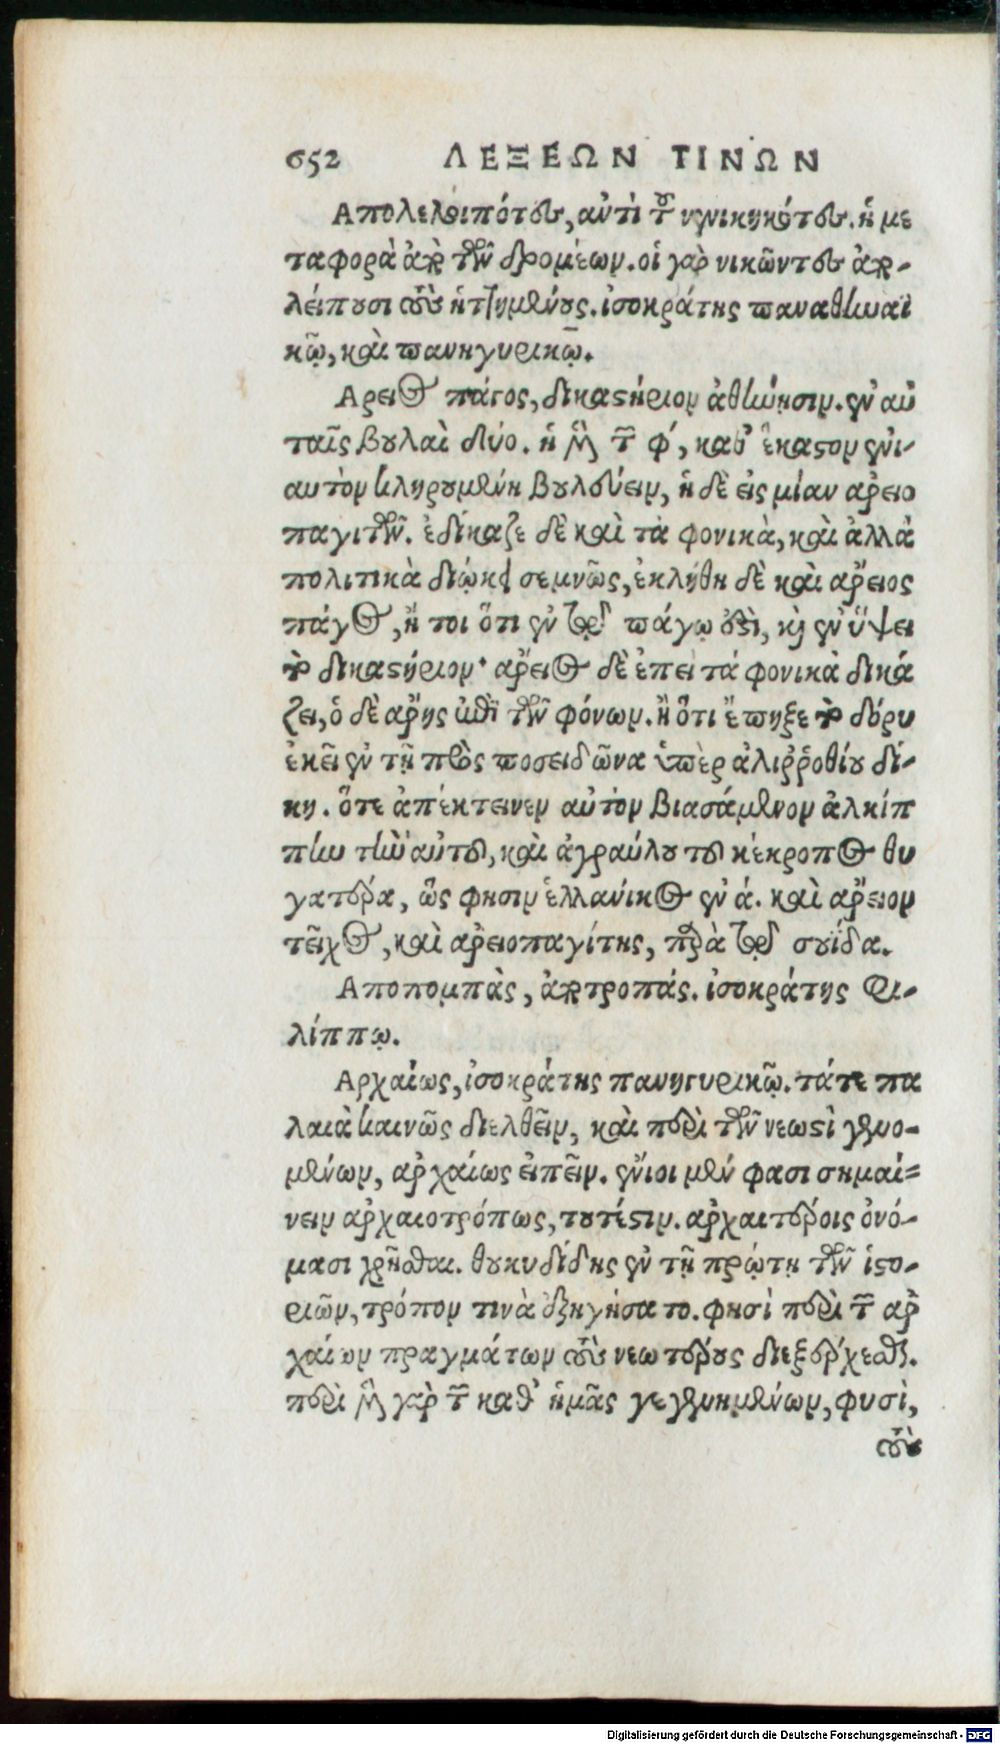 652 ΛΕΞΕΩΝ ΤΙΝΩΝ
Απολελοιπότες, αὐτὶ τοῦ νενικηκότες. ἡ με
ταφορὰ ἀπὸ τῶν δρομέων. οἱ γὰρ νικῶντες ἀπο-
λείπουσι τοὺς ἡττημένους. ἰσοκράτης παναθηναϊ
κῷ, καὶ πανηγυρικῷ.
Αρειος πάγος, δικαστήριον ἀθήνῃσιν. ἐν αὐ
ταῖς βουλαὶ δύο. ἡ μὲν τῶν φ΄, καθ' ἕκαστον ἐνι-
αυτὸν κληρουμένη βουλεύειν, ἡ δὲ εἰς μίαν ἀρειο
παγιτῶν. ἐδίκαζε δὲ καὶ τὰ φονικὰ, καὶ ἀλλὰ
πολιτικὰ διῴκει σεμνῶς, ἐκλήθη δὲ καὶ ἄρειος
πάγος, ἤ τοι ὅτι ἐν τῷ πάγῳ ἐστὶ, καὶ ἐν ὕψει
τὸ δικαστήριον· ἄρειος δὲ ἐπει τά φονικὰ δικά
ζει, ὁ δὲ ἄρης ἐπὶ τῶν φόνων. ἢ ὅτι ἔπηξε τὸ δόρυ
ἐκεῖ ἐν τῇ πρὸς ποσειδῶνα ὑπὲρ ἁλιῤῥοθίου δί-
κῃ. ὅτε ἀπέκτεινεν αὐτὸν βιασάμενον ἀλκίπ
πην τὴν αὐτοῦ, καὶ ἀγραύλου τοῦ κέκροπος θυ
γατέρα, ὥς φησιν ἑλλάνικος ἐν ά. καὶ ἄρειον
τεῖχος, καὶ ἀρειοπαγίτης, παρὰ τῷ σουΐδα.
Αποπομπὰς, ἀποτροπάς. ἰσοκράτης Φι-
λίππῳ.
Αρχαίως, ἰσοκράτης πανηγυρικῷ. τά τε πα
λαιὰ καινῶς διελθεῖν, καὶ περὶ τῶν νεωστὶ γενο-
μένων, ἀρχαίως εἰπεῖν. ἔνιοι μέν φασι σημαί=
νειν ἀρχαιοτρόπως, τουτέστιν. ἀρχαιτέροις ὀνό-
μασι χρῆσθαι. θουκυδίδης ἐν τῇ πρώτῃ τῶν ἱστο-
ριῶν, τρόπον τινὰ ἐξηγήσατο. φησὶ περὶ τῶν ἀρ
χαίων πραγμάτων τοὺς νεωτέρους διεξέρχεσθαι.
περὶ μὲν γὰρ τῶν καθ' ἡμᾶς γεγενημένων, φυσὶ,
τοὺς
Digitalisierung gefördert durch die Deutsche Forschungsgemeinschaft - DFG